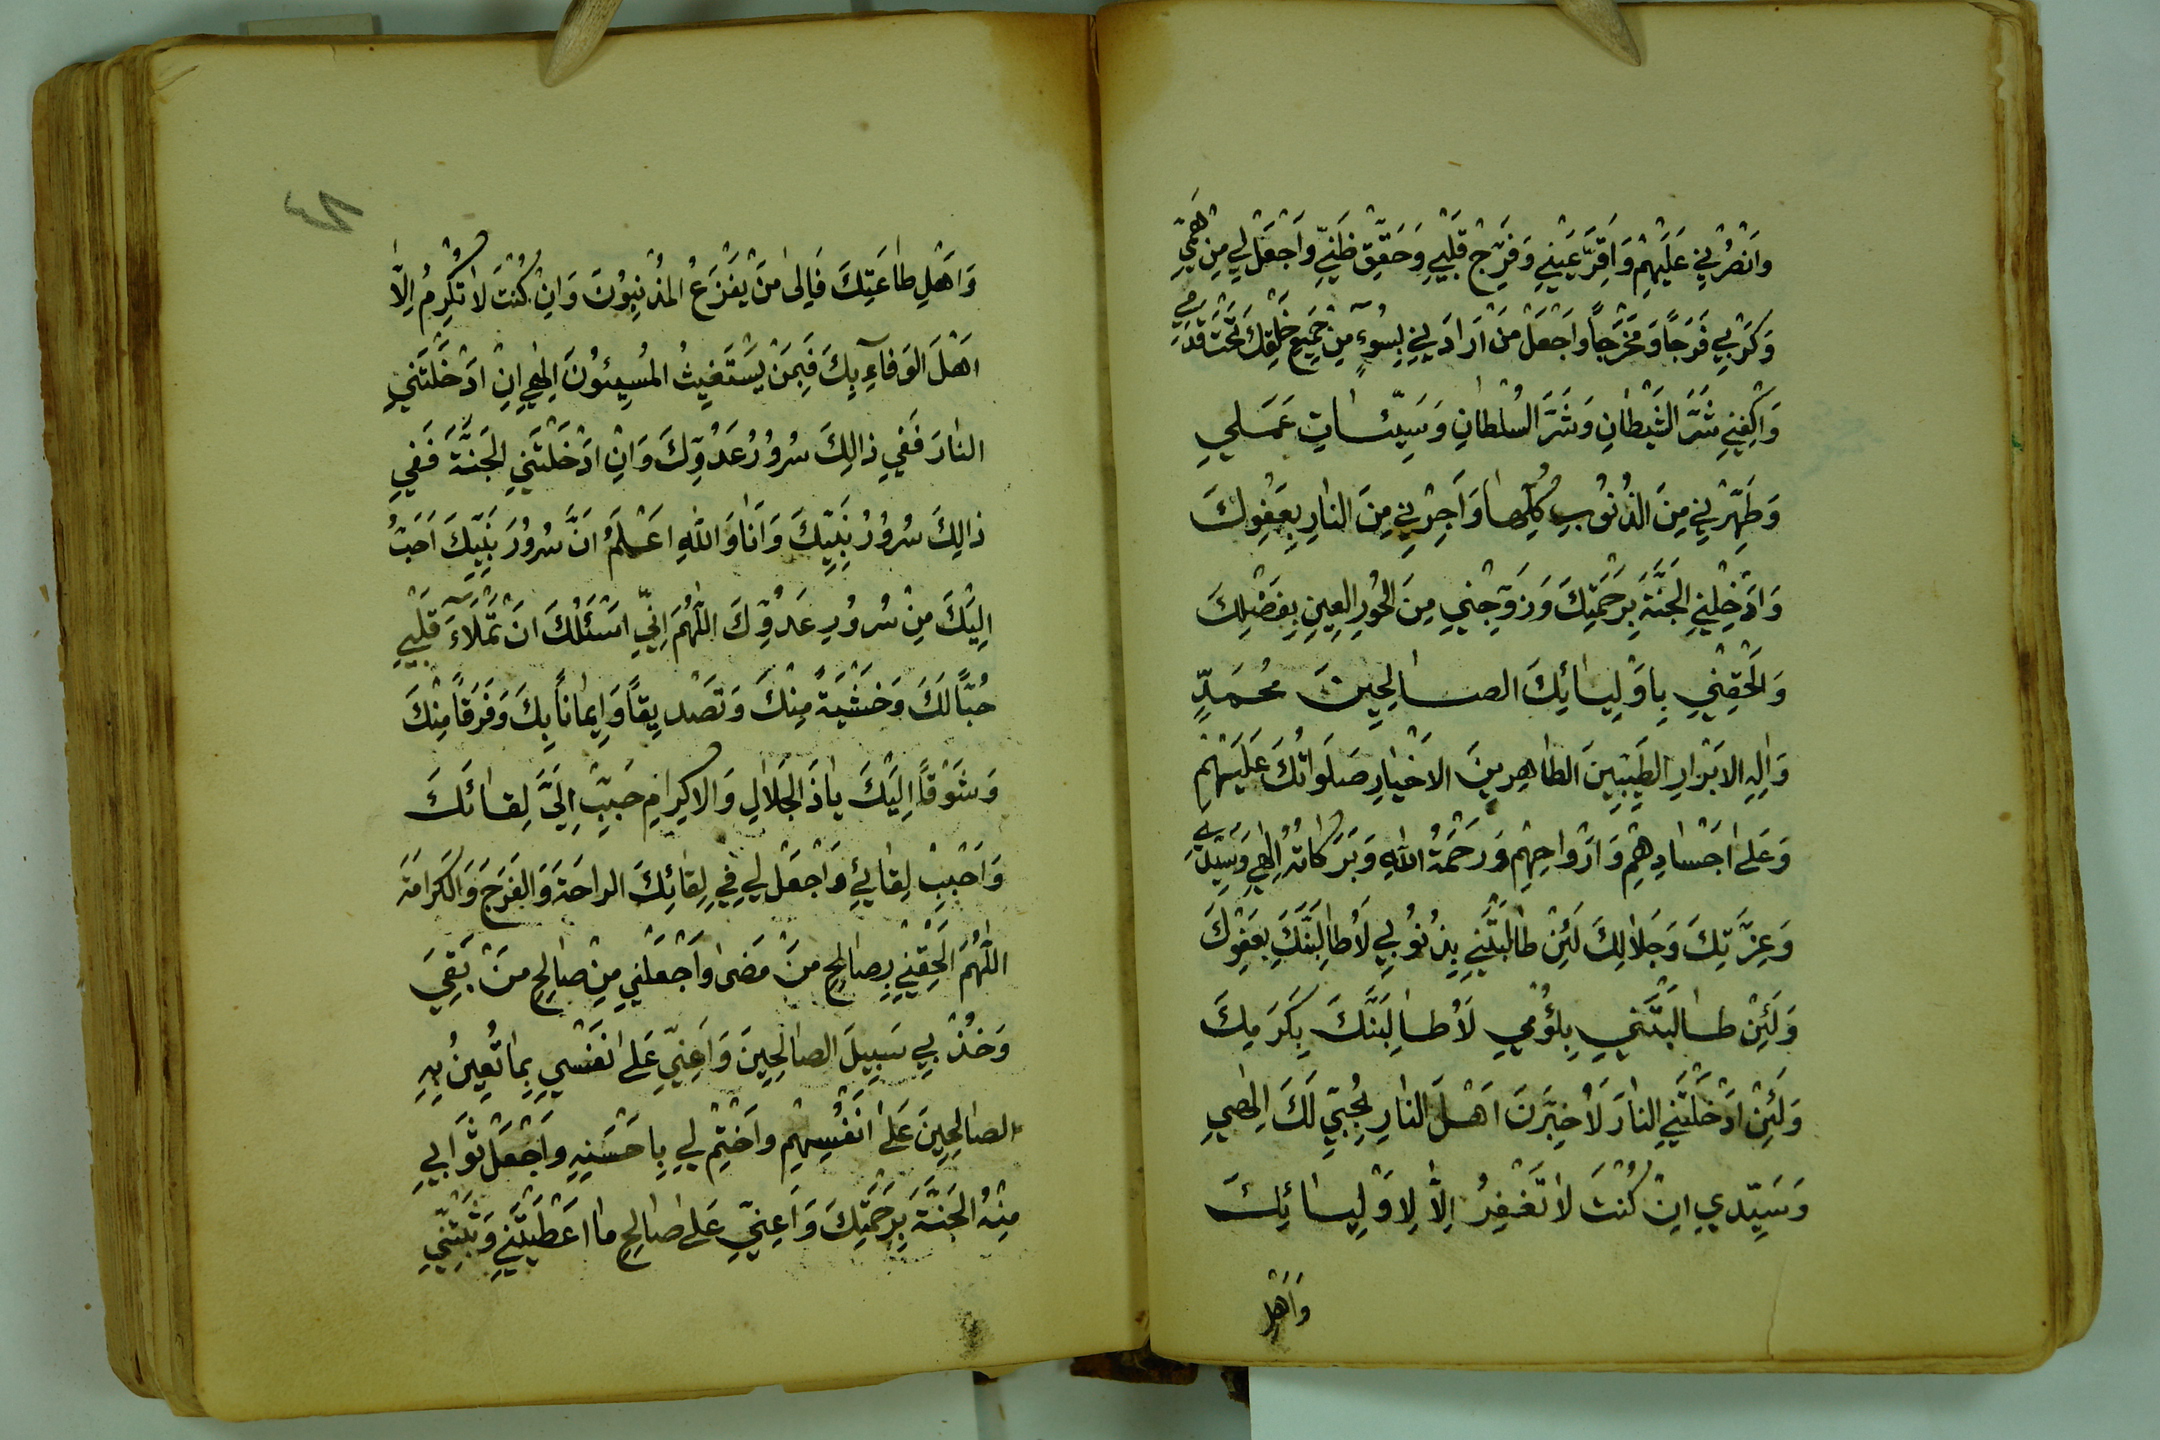 وَانْصُرْنِي عَلَيْهِمْ وَاَقِرَّ عَيْنِي وَفَرِّجْ قَلْبِي وَحَقِّقْ ظَنِّي وَاجْعَلْ لِي مِنْ هَمِّي
وَكَرْبِي فَرَجًا وَمَخْرَجًا وَاجْعَلْ مَنْ اَرَادَنِي بِسُوءٍ مِنْ جَمِيعِ خَلْقِكَ تَحْتَ قَدَمَيَّ
وَاكْفِنِي شَرَّ الشَّيْطَانِ وَشَرَّ السُّلْطَانِ وَسَيِّئَاتِ عَمَلِي
وَطَهِّرْنِي مِنَ الذُّنُوْبِ كُلِّهَا وَاَجِرْنِي مِنَ النَّارِ بِعَفْوِكَ
وَادْخِلْنِي الْجَنَّةَ بِرَحْمَتِكَ وَزَوِّجْنِي مِنَ الْحُوْرِ الْعِيْنِ بِفَضْلِكَ
وَالْحِقْنِي بِاَوْلِيَائِكَ الصَالِحِيْنَ مُحَمَدٍ
وَاٰلِهِ الاَبْرَارِ الطَيِّبِيْنَ الطَاهِرِيْنَ الاَخْيَارِ صَلَوَاتُكَ عَلَيْهِمْ
وَعَلٰى اَجْسَادِهِمْ وَاَرْوَاحِهِمْ وَرَحْمَةُ اللّٰهِ وَبَرَكَاتُهُ اِلٰهِي وَسَيِّدِي
وَعِزَّتِكَ وَجَلَالِكَ لَئِنْ طَالَبْتَنِي بِذُنُوْبِي لَاُطَالِبَنَّكَ بِعَفْوِكَ
وَلَئِنْ طَالَبْتَنِي بِلُؤْمِي لَاُطَالِبَنَّكَ بِكَرَمِكَ
وَلَئِنْ اَدْخَلْتَنِي النَارَ لَاُخْبِرَنَّ اَهْلَ النَارِ بِحُبِّي لَكَ اِلٰهِي
وَسَيِّدِي اِنْ كُنْتَ لَا تَغْفِرُ اِلَّا لِاَوْلِيَائِكَ
وَاَهْلِ
٨٣
وَاَهْلِ طَاعَتِكَ فَاِلٰى مَنْ يَفْزَعُ الْمُذْنِبُوْنَ وَاِنْ كُنْتَ لَا تُكْرِمُ اِلَّا
اَهْلَ الْوَفَآءِ بِكَ فَبِمَنْ يَسْتَغِيْثُ الْمُسِيْئُوْنَ اِلٰهِي اِنْ اَدْخَلْتَنِي
النَارَ فَفِي ذَالِكَ سُرُوْرُ عَدُوِّكَ وَاِنْ اَدْخَلْتَنِي الْجَنَّةَ فَفِي
ذَالِكَ سُرُوْرُ نَبِيِّكَ وَاَنَا وَاللّٰهِ اَعْلَمُ اَنَّ سُرُوْرَ نَبِيِّكَ اَحَبُّ
اِلَيْكَ مِنْ سُرُوْرِ عَدُوِّكَ اللّٰهُمَّ اِنِّي اَسْئَلُكَ اَنْ تَمْلَاءَ قَلْبِي
حُبًّا لَكَ وَخَشْيَةً مِنْكَ وَتَصْدِيْقًا وَاِيْمَانًا بِكَ وَفَرَقًا مِنْكَ
وَشَوْقًا اِلَيْكَ يَاذَا الْجَلَالِ وَالاِكْرَامِ حَبِّبْ اِلَيَّ لِقَائَكَ
وَاَحْبِبْ لِقَائِي وَاجْعَلْ لِي فِي لِقَائِكَ الرَاحَةَ وَالْفَرَجَ وَالْكَرَامَةَ
اللّٰهُمَّ الْحِقْنِي بِصَالِحِ مَنْ مَضٰى وَاجْعَلْنِي مِنْ صَالِحِ مَنْ بَقِيَ
وَخُذْ بِي سَبِيْلَ الصَالِحِيْنَ وَاَعِنِّي عَلٰى نَفْسِي بِمَا تُعِيْنُ بِهِ
الصَالِحِيْنَ عَلٰى اَنْفُسِهِمْ وَاخْتِمْ لِي بِاَحْسَنِهِ وَاجْعَلْ ثَوَابِي
مِنْهُ الْجَنَّةَ بِرَحْمَتِكَ وَاَعِنِّي عَلٰى صَالِحِ مَا اَعْطَيْتَنِي وَثَبِّتْنِي